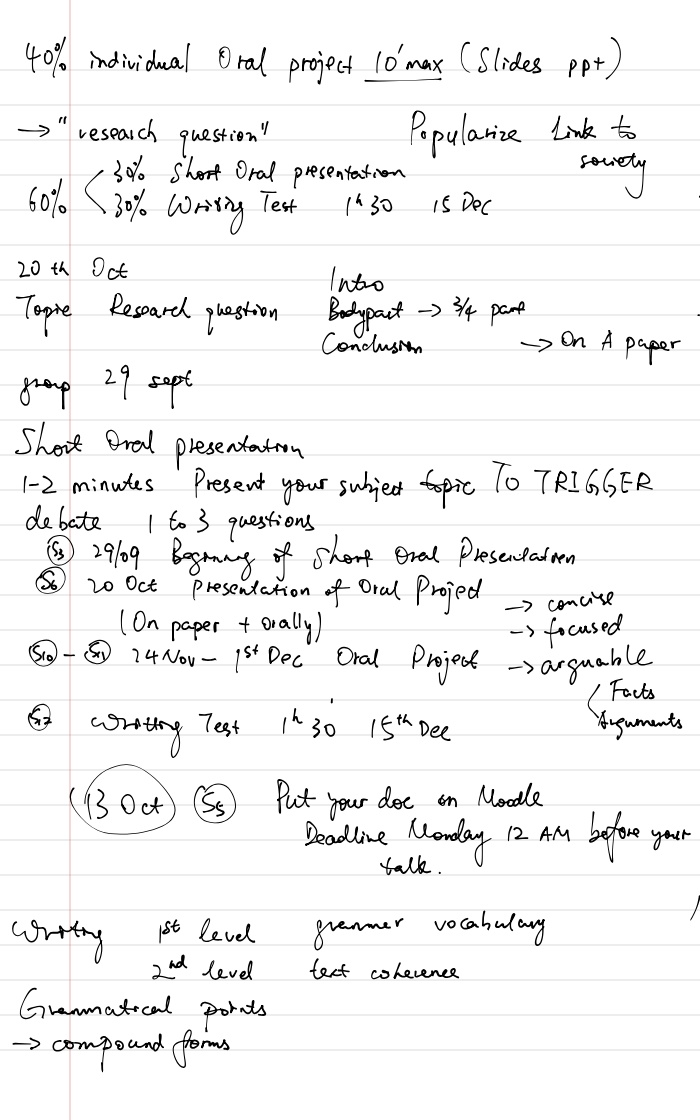 40% individual Oral project 10' max (Slides ppt)
→ "research question" Popularize Link to society
60% 30% Short Oral presentation
30% Writing Test 1h 30 15 Dec
20 th Oct
Topic Research question
Intro
Bodypart → 3/4 part
Conclusion → On A paper
group 29 sept
Short Oral presentation
1-2 minutes Present your subject topic TO TRIGGER
debate 1 to 3 questions
S3 29/09 Beginning of Short Oral Presentation
S6 20 Oct Presentation of Oral Project
(On paper + orally)
→ concise
→ focused
S10 - S11 24 Nov - 1st Dec Oral Project → arguable
Facts
Arguments
Writting Test 1h 30' 15th Dec
13 Oct S5 Put your doc on Moodle
Deadline Monday 12 AM before your
talk.
Writing 1st level grammer vocabulary
2nd level text coherence
Grammatical points
→ compound forms